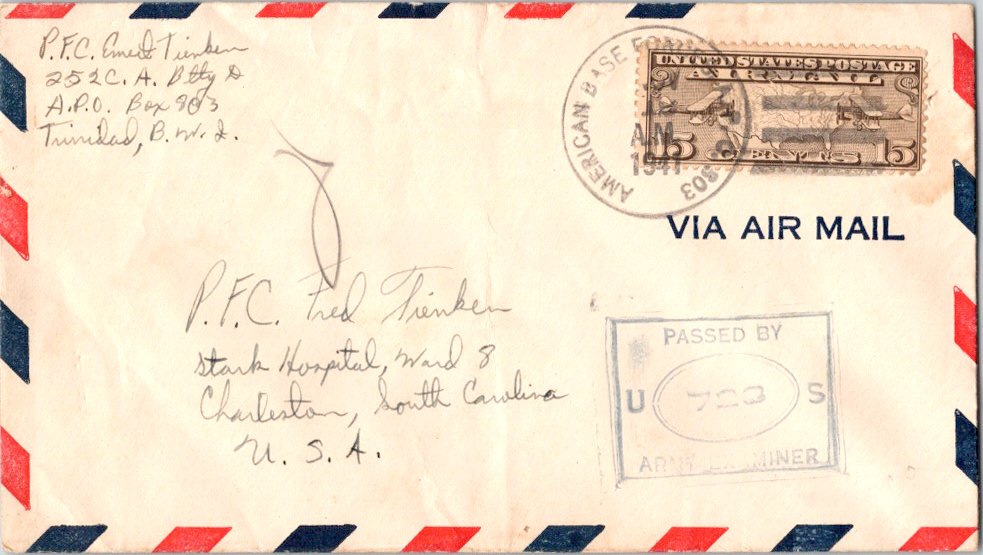 P.F.C. Ernest Tienken
252 C.A. Btty D
A.P.O. Box 803
Trinidad, B.W.I.
AMERICAN BASE
A.M.
1941
803
UNITED STATES POSTAGE
AIR MAIL
15 CENTS 15
VIA AIR MAIL
P.F.C. Fred Tienken
Stark Hospital, Ward 8
Charleston, South Carolina
U. S. A.
PASSED BY
U S
ARMY EXAMINER